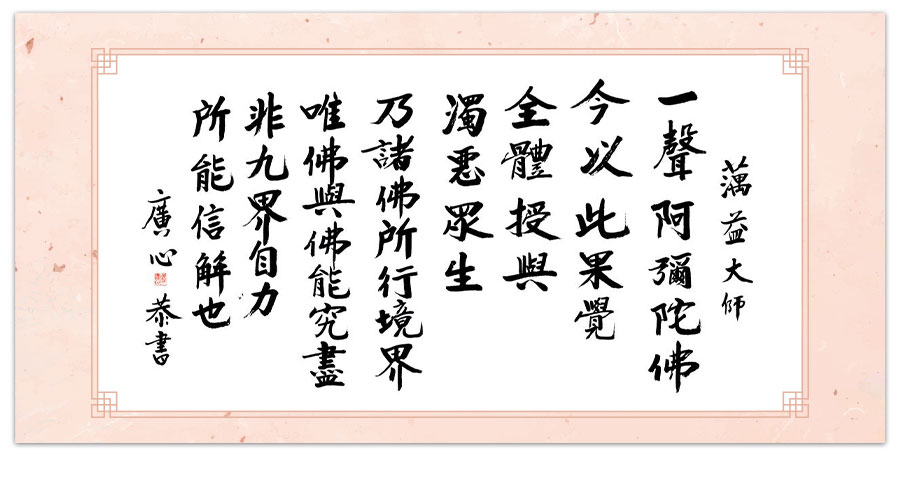 蕅益大师
一聲阿彌陀佛
今以此果覺
全體授與
濁惡眾生
乃諸佛所行境界
唯佛與佛能究盡
非九界自力
所能信解也
廣心 恭書